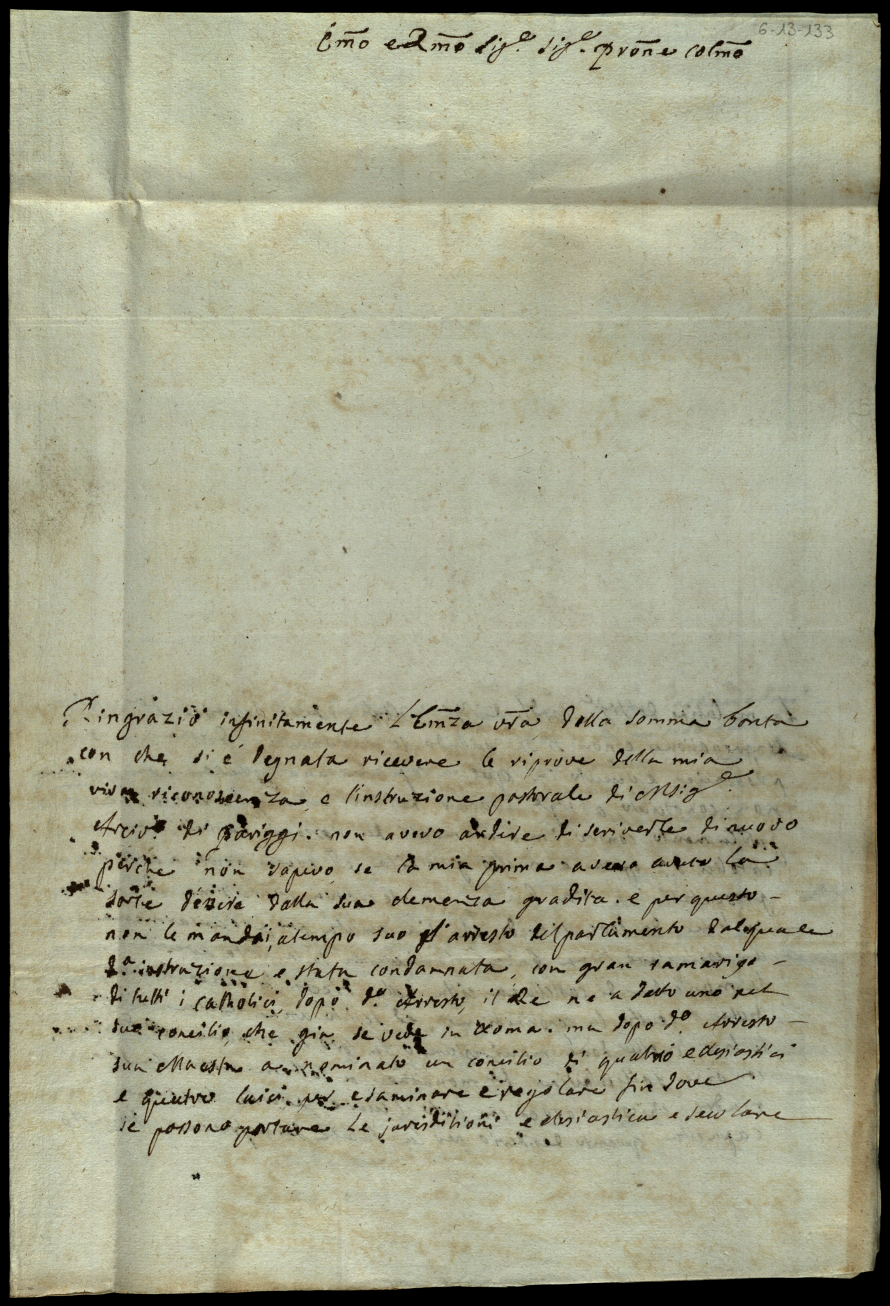 6-13-133
Em̃o e Rm̃o Sig.re Sig.re pron̄e colm̃o
Ringrazio infinitamente L'Em̃za vr̃a della somma bontà
con che si é degnata ricevere le riprove della mia
viva riconoscenza e l'instruzione pastorale di Msig.re
Arciv.o di Pariggi. non avevo ardire di scriverle di nuovo
perche non sapevo se la mia prima avesse avuto la
sorte d'essere dalla sua clemenza gradita. e per questo -
non le mandai, a tempo suo l'arresto del parlamento dal quale
d.a instruzione e stata condannata, con gran ramarigo -
di tutti i catholici, dopo d.o Arresto, il Re ne a dato uno nel
suo concilio, che gia se vede in Roma. ma dopo d.o Arresto -
sua Maesta a nominato un concilio di quatro eclesiastici
e quatro laici per esaminare e regolare fin dove
se possono portare le jurisditioni eclesiastica e seculare